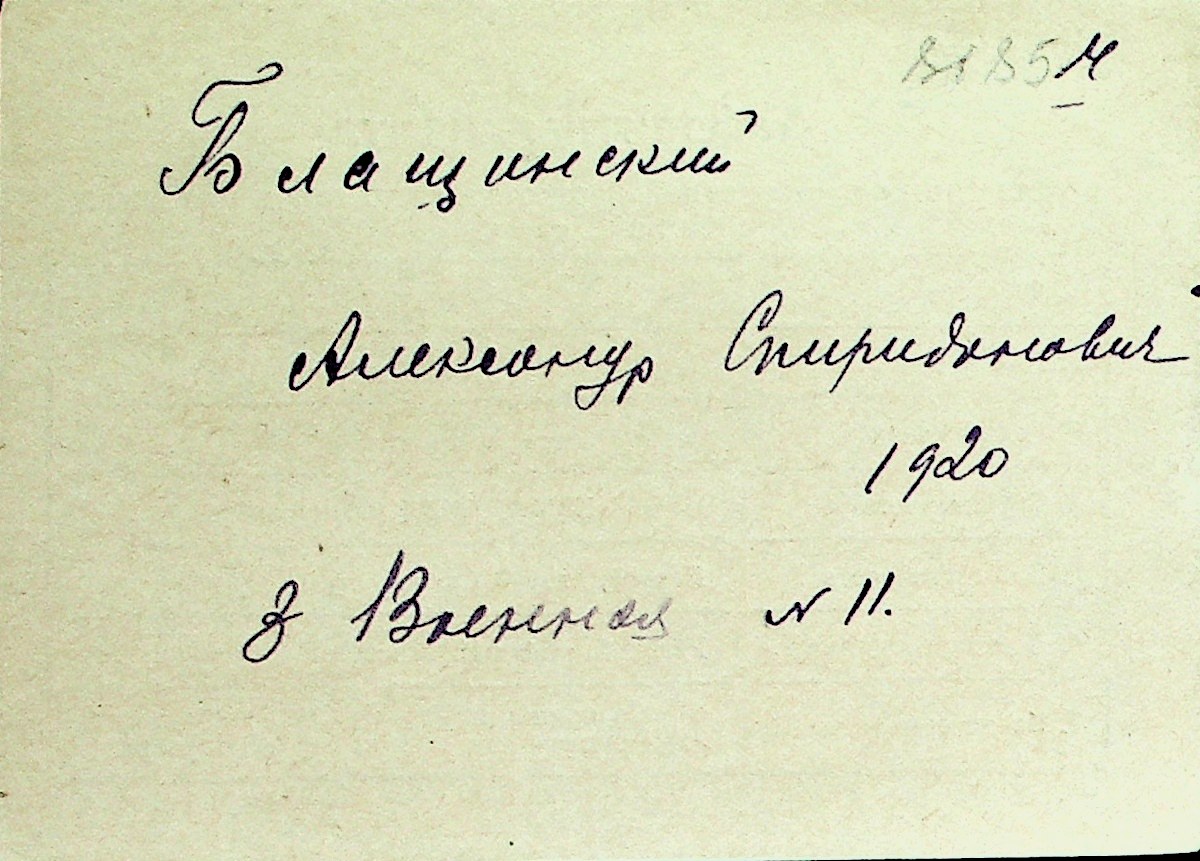 8185 М
Блащинский
Александр Спиридонович
1920
3 Военная № 11.